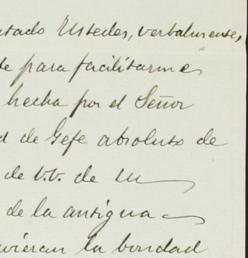 ntado Ustedes, verbalmente,
te para facilitarme
hecha por el Señor
d de Gefe absoluto de
de v.v. de un
de la antigua
vieran la bondad